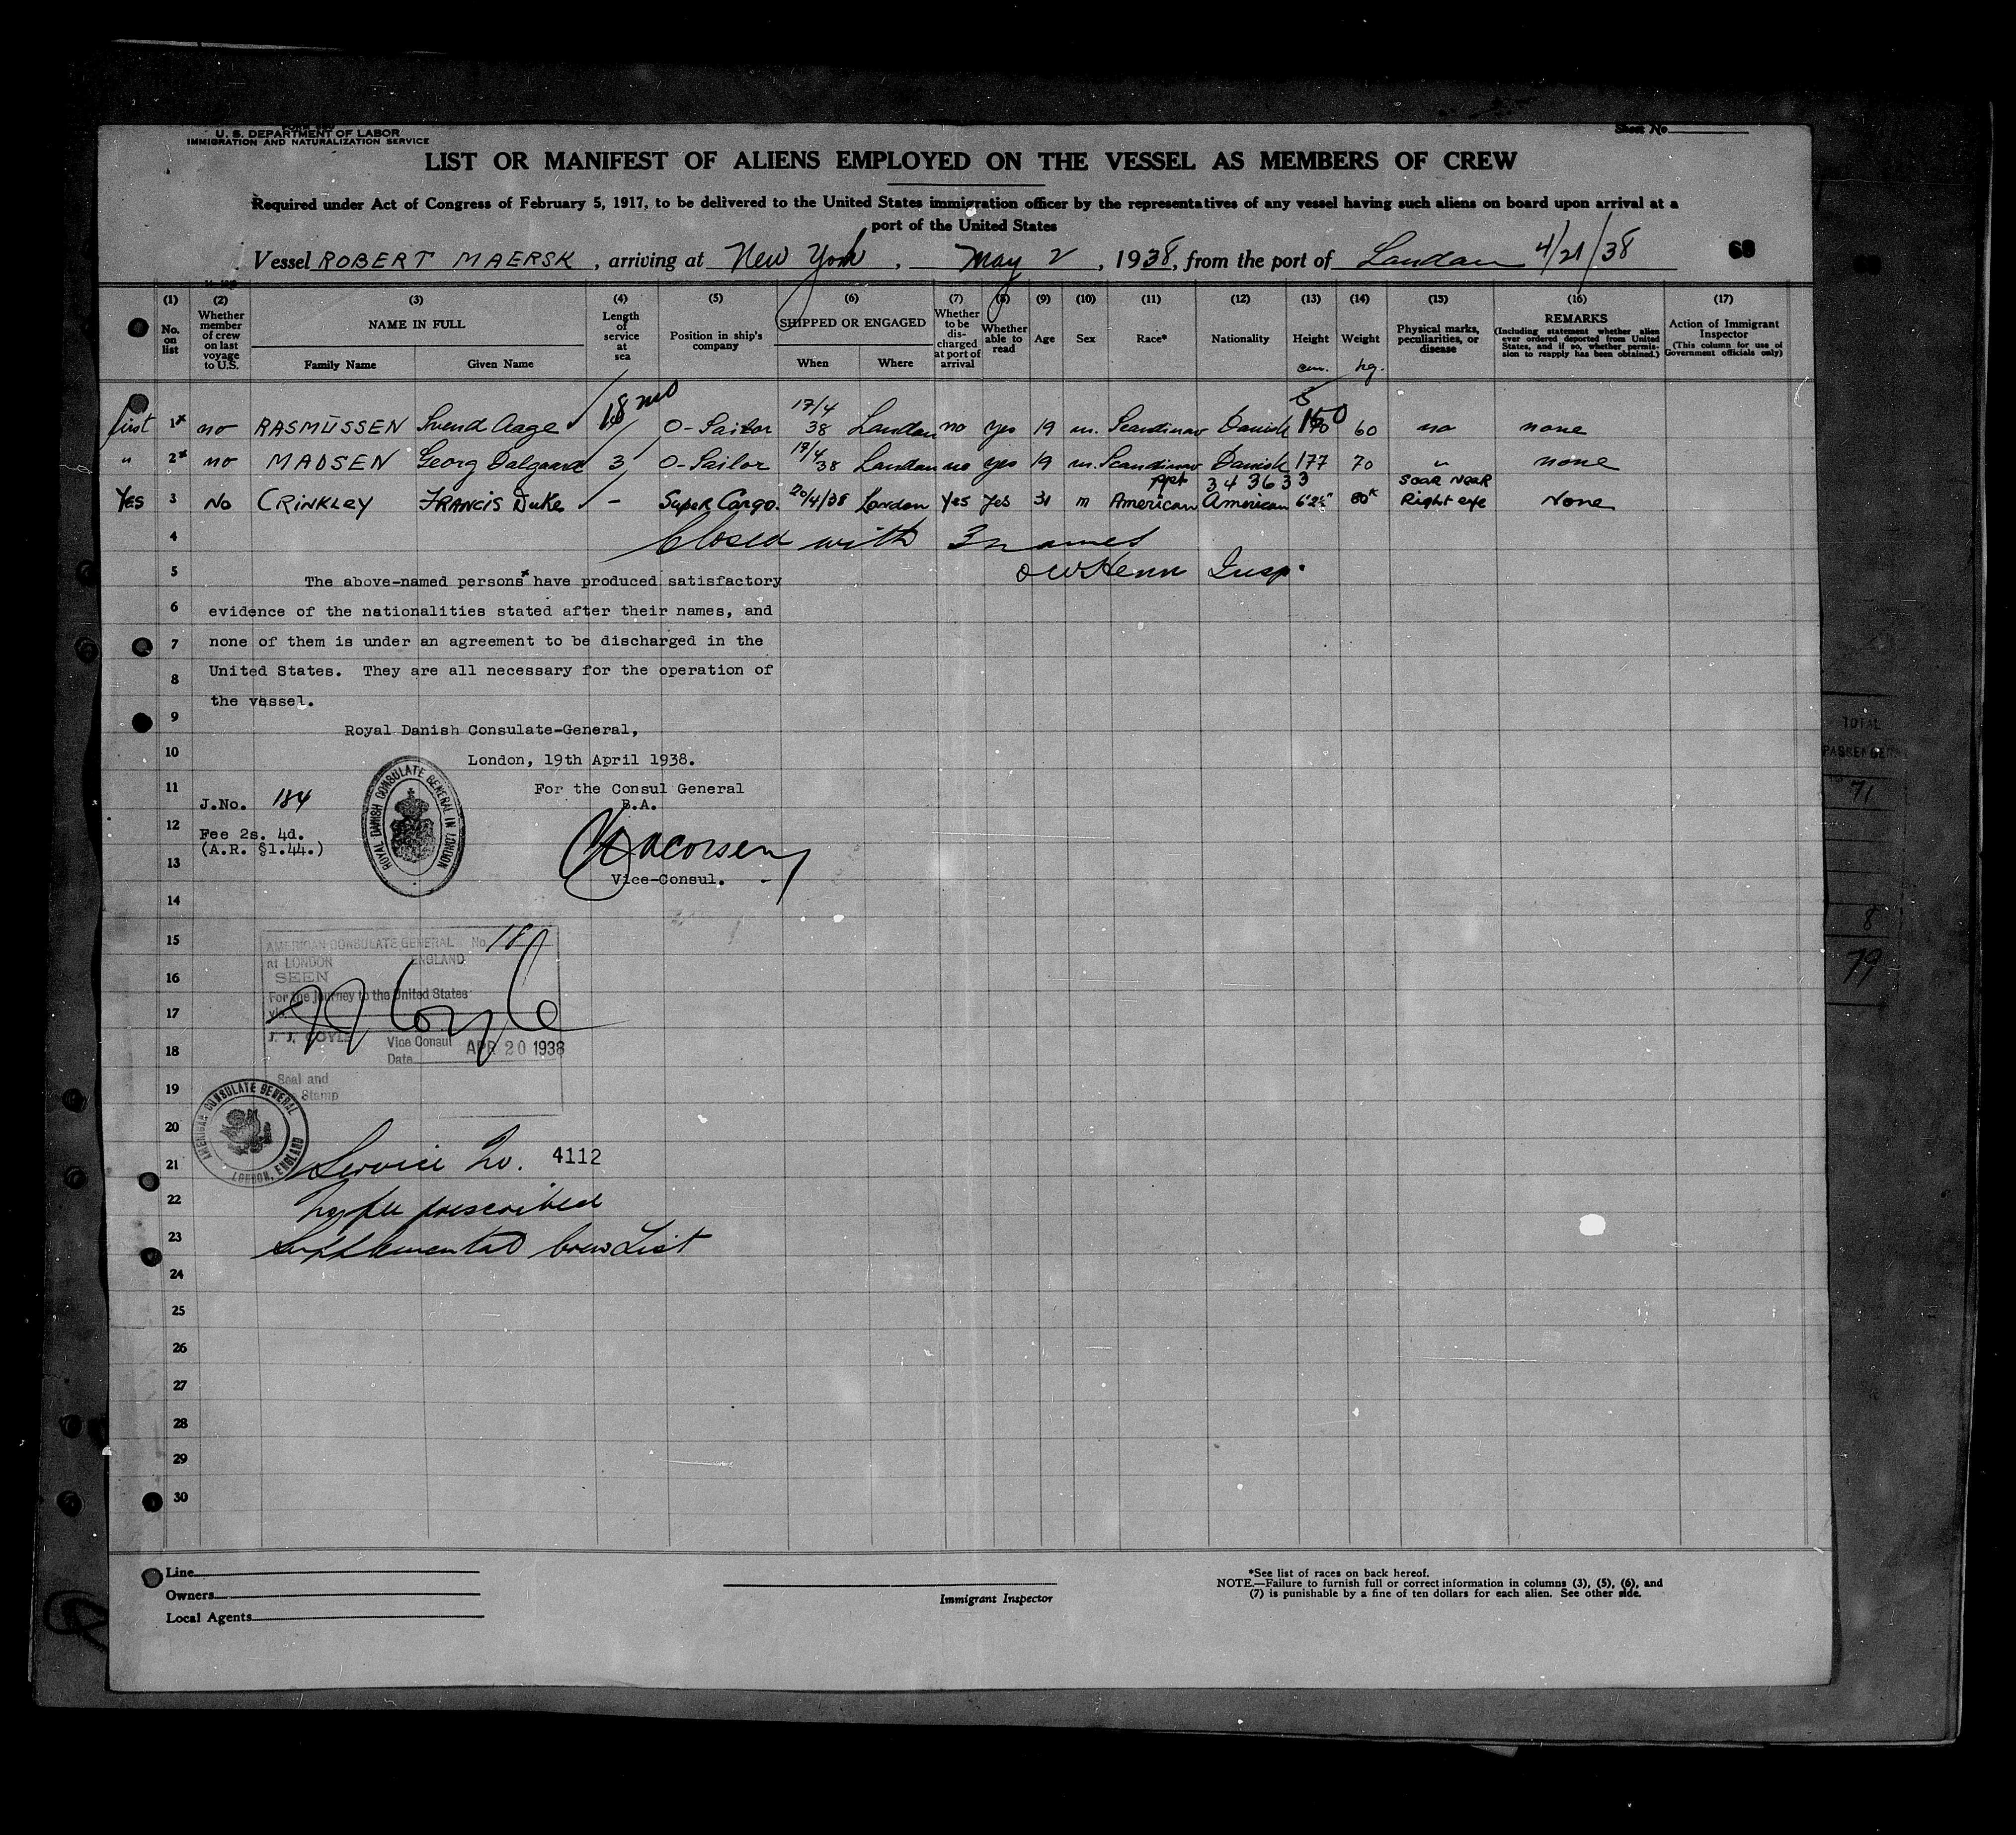 U. S. DEPARTMENT OF LABOR
IMMIGRATION AND NATURALIZATION SERVICE
Sheet No.
LIST OR MANIFEST OF ALIENS EMPLOYED ON THE VESSEL AS MEMBERS OF CREW
Required under Act of Congress of February 5, 1917, to be delivered to the United States immigration officer by the representatives of any vessel having such aliens on board upon arrival at a
port of the United States
Vessel ROBERT MAERSK, arriving at New York, May 2, 1938, from the port of London 4/21/38
68
(1) (2) (3) (4) (5) (6) (7) (8) (9) (10) (11) (12) (13) (14) (15) (16) (17)
No. on list
Whether member of crew on last voyage to U.S.
NAME IN FULL
Family Name Given Name
Length of service at sea
Position in ship's company
SHIPPED OR ENGAGED
When Where
Whether to be discharged at port of arrival
Whether able to read
Age
Sex
Race*
Nationality
Height
cm.
Weight
kg.
Physical marks, peculiarities, or disease
REMARKS
(Including statement whether alien ever ordered deported from United States, and if so, whether permission to reapply has been obtained.)
Action of Immigrant Inspector
(This column for use of Government officials only)
first 1x no RASMUSSEN Svend Aage 18 mo O-Sailor 17/4 38 London no yes 19 m. Scandinav Danish 60 no none
" 2x no MADSEN Georg Dalgaard 3 O-Sailor 19/4 38 London no yes 19 m. Scandinav Danish 177 70 " none
ppt 343633
Yes 3 No CRINKLEY FRANCIS Duke - Super Cargo. 20/4/38 London Yes Yes 31 m American American 6'2½" 80K Scar near Right eye None
4 Closed with 3 names
5 Insp.
The above-named persons x have produced satisfactory
6 evidence of the nationalities stated after their names, and
7 none of them is under an agreement to be discharged in the
8 United States. They are all necessary for the operation of
the vessel.
9
Royal Danish Consulate-General,
10
London, 19th April 1938.
11 For the Consul General
J.No. 184
B.A.
12
Fee 2s. 4d.
(A.R. §1.44.)
ROYAL DANISH CONSULATE GENERAL IN LONDON
13
Vice-Consul.
14
15 AMERICAN CONSULATE GENERAL No. 18
at LONDON ENGLAND
16 SEEN
For the journey to the United States
17 via
J. J. COYLE
18 Vice Consul
Date APR 20 1938
19 Seal and
Stamp
AMERICAN CONSULATE GENERAL LONDON, ENGLAND
20
21 Service No. 4112
22 No fee prescribed
23 Supplemental Crew List
24
25
26
27
28
29
30
Line
Owners
Local Agents
Immigrant Inspector
*See list of races on back hereof.
NOTE.—Failure to furnish full or correct information in columns (3), (5), (6), and
(7) is punishable by a fine of ten dollars for each alien. See other side.
TOTAL
PASSENGERS
71
8
79